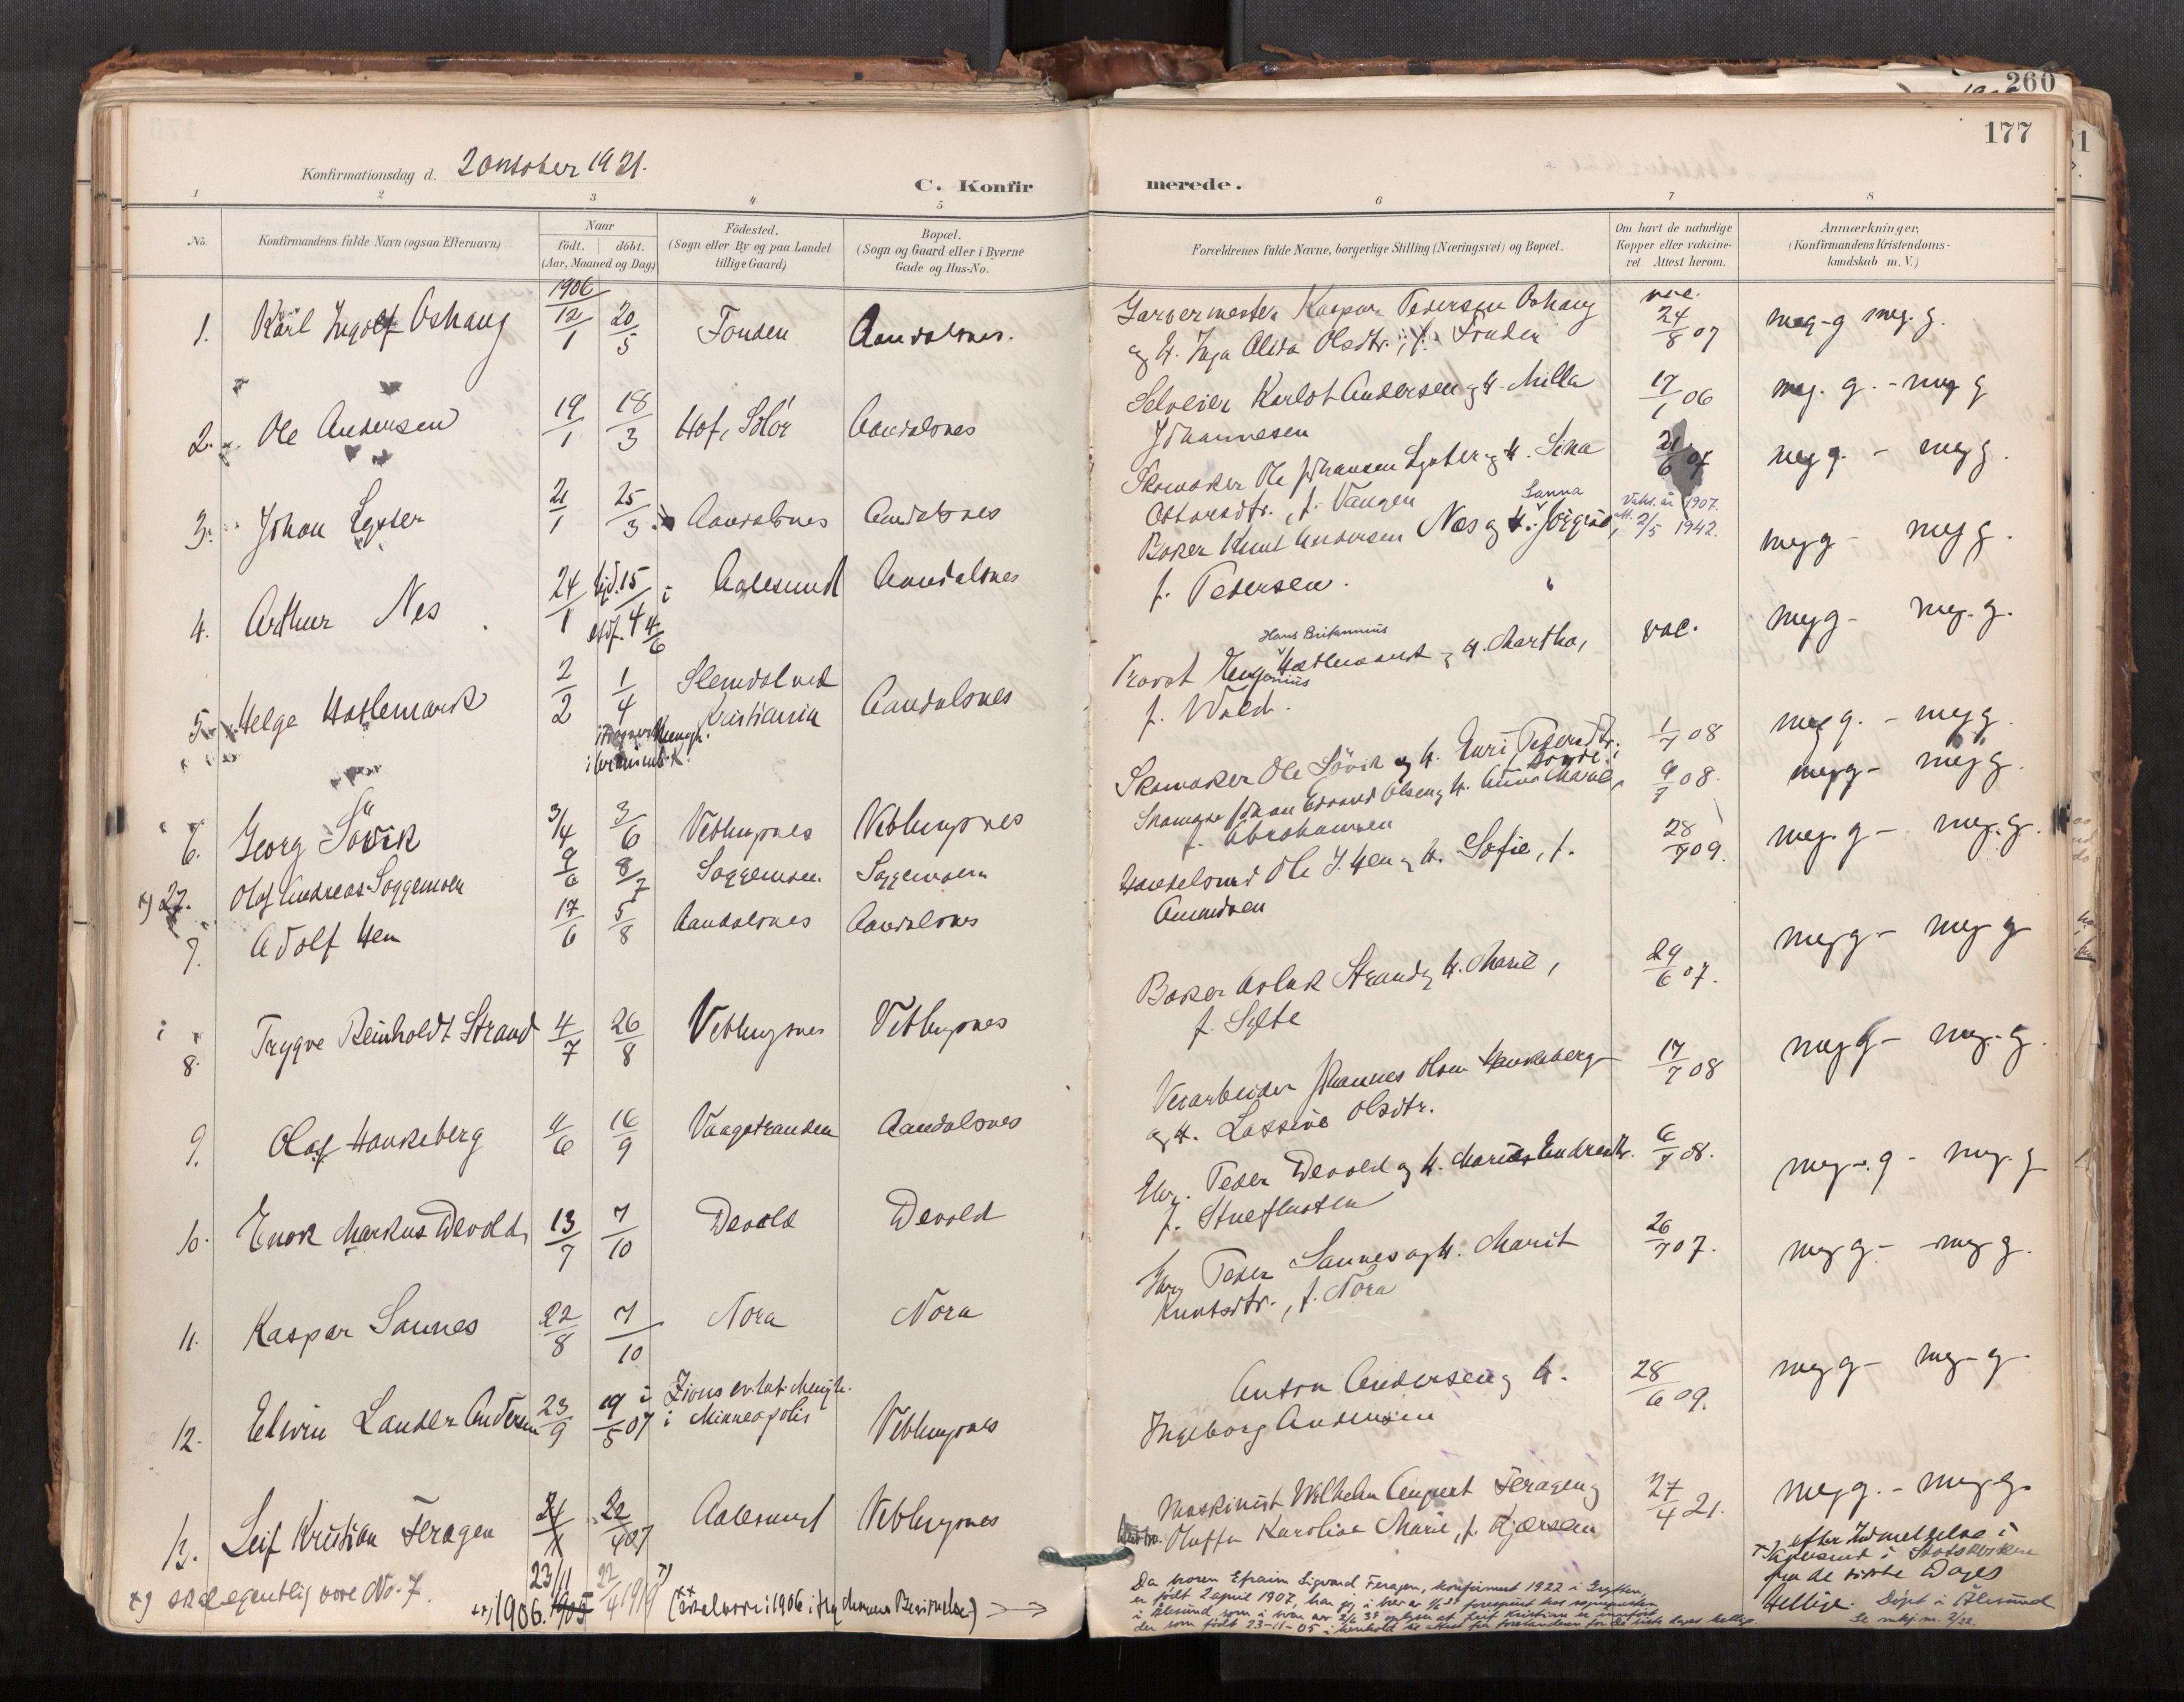 260
177
Konfirmationsdag d. 2 oktober 1921.
C. Konfirmerede.
1 2 3 4 5 6 7 8
No.
Konfirmandens fulde Navn (ogsaa Efternavn)
Naar
födt. döbt.
(Aar, Maaned og Dag)
Födested.
(Sogn eller By og paa Landet
tillige Gaard)
Bopæl.
(Sogn og Gaard eller i Byerne
Gade og Hus-No.
Forældrenes fulde Navne, borgerlige Stilling (Næringsvei) og Bopæl.
Om havt de naturlige
Kopper eller vakcine-
ret. Attest herom.
Anmærkninger,
(Konfirmandens Kristendoms-
kundskab m. V.)
1906
1. Karl Ingolf Oshaug 12/1 20/5 Fonden Aandalsnes.
Garvermester Kaspar Pedersen Oshaug vac. 24/8 07 meg-g meg. g.
og H. Inga Alida Olsdtr.
2. Ole Andersen 19/1 18/3 Hof, Solör Aandalsnes
Selveier Karlot Andersen og H. Milla 17/1 06 meg. g. - meg g
Johannesen
3. Johan Lyster 21/1 25/3 Aandalsnes Aandalsnes
Skomaker Ole Johansen Lyster og H. Lina 21/6 07 meg g. - meg g.
Ottarsdtr., f. Vangen
4. Arthur Nes 24/1 15/4 4/6 i Aalesund Aandalsnes
Sanna
Baker Knut Andersen Nes og H. Jörgine, Vaks. år 1907. att. 2/5 1942. meg g - meg g.
f. Pedersen.
5. Helge Hatlemark 2/2 1/4 Slemdal ved Kristiania Aandalsnes
Hans Britannius
Provst Hatlemark og H. Martha, vac. meg g - meg. g.
f. Wold.
6. Georg Sövik 3/4 3/6 Veblungsnes Veblungsnes
Skomaker Ole Sövik og H. Guri Pedersdtr. 1/7 08 meg g. - meg g.
x) 27. Olaf Andreas Soggemoen 9/6 8/7 Soggemoen Soggemoen
Johan Edvard Olsen og H. Anna Marie 08. meg g - meg g.
f. Abrahamsen
7. Adolf Hen 17/6 5/8 Aandalsnes Aandalsnes
Handelsmd Ole J. Hen og H. Sofie, f. 28/7 09. meg. g - meg. g.
Amundsen
8. Trygve Reinholdt Strand 4/7 26/8 Veblungsnes Veblungsnes
Baker Aslak Strand og H. Marie, 29/6 07. meg g - meg g
f. Sylte
9. Olaf Haukeberg 4/6 16/9 Vaagstranden Aandalsnes
Veiarbeider Johannes Olsen Haukeberg 17/7 08 meg g - meg. g.
og H. Lassine Olsdtr.
10. Enok Markus Devold 13/7 7/10 Devold Devold
Peder Devold og H. Marie Endresdtr. 6/7 08. meg. g - meg. g
f. Stueflotten
11. Kaspar Sannes 22/8 7/10 Nora Nora
Peder Sannes og H. Marit 26/7 07. meg g - meg g.
Knutsdtr., f. Nora
12. Edwin Lander Andersen 23/9 19/5 07 i Zions ev. lut. Menigh. i Minneapolis Veblungsnes
Anton Andersen og H. 28/6 09. meg g - meg - g
Ingeborg Andersen
13. Leif Kristian Feragen 22/4 07 Aalesund Veblungsnes
Maskinist Wilhelm August Feragen og 27/4 21. meg g. - meg g.
Hustru Oluffa Karoline Marie, f. Kjærsem
23/11 22/4 1919 x)
x) skal egentlig være No. 7
xx) 1906. 1905
(xx skal være i 1906 iflg. )
x) efter Indmeldelse i
Aalesund i Statskirken
fra de sidste Dages
Hellige. Döpt i Ålesund
Se mkj. m. 2/22.
Da broren Efraim Sigvard Feragen, konfirmert 1922 i Grytten,
er født 2 april 1907,
i Ålesund som i svar av 2/6 39 opplyser at Leif Kristian er innført
der som født 23-11-05 i henhold til attest fra forstanderen for De siste dages hellige.